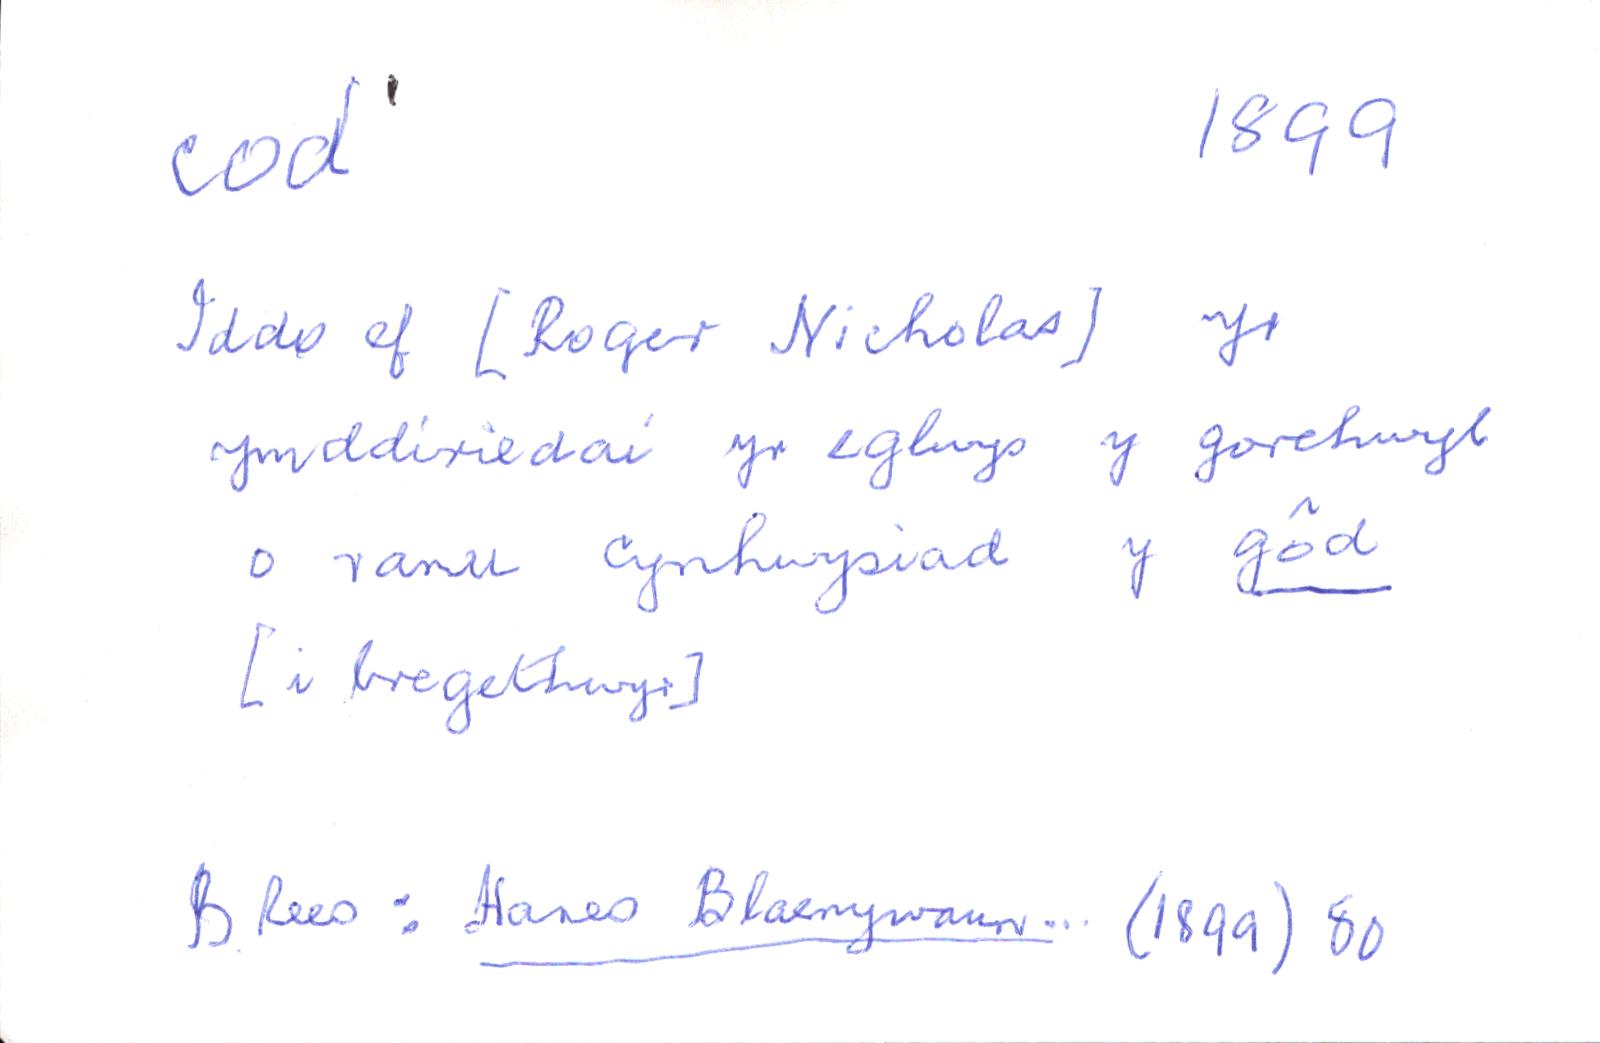 cod' 1899
Iddo ef [Roger Nicholas] yr
ymddiriedai yr eglwys y gorchwyl
o ranu cynhwysiad y gôd
[i bregethwyr]
B Rees : Hanes Blaenywaun... (1899) 80